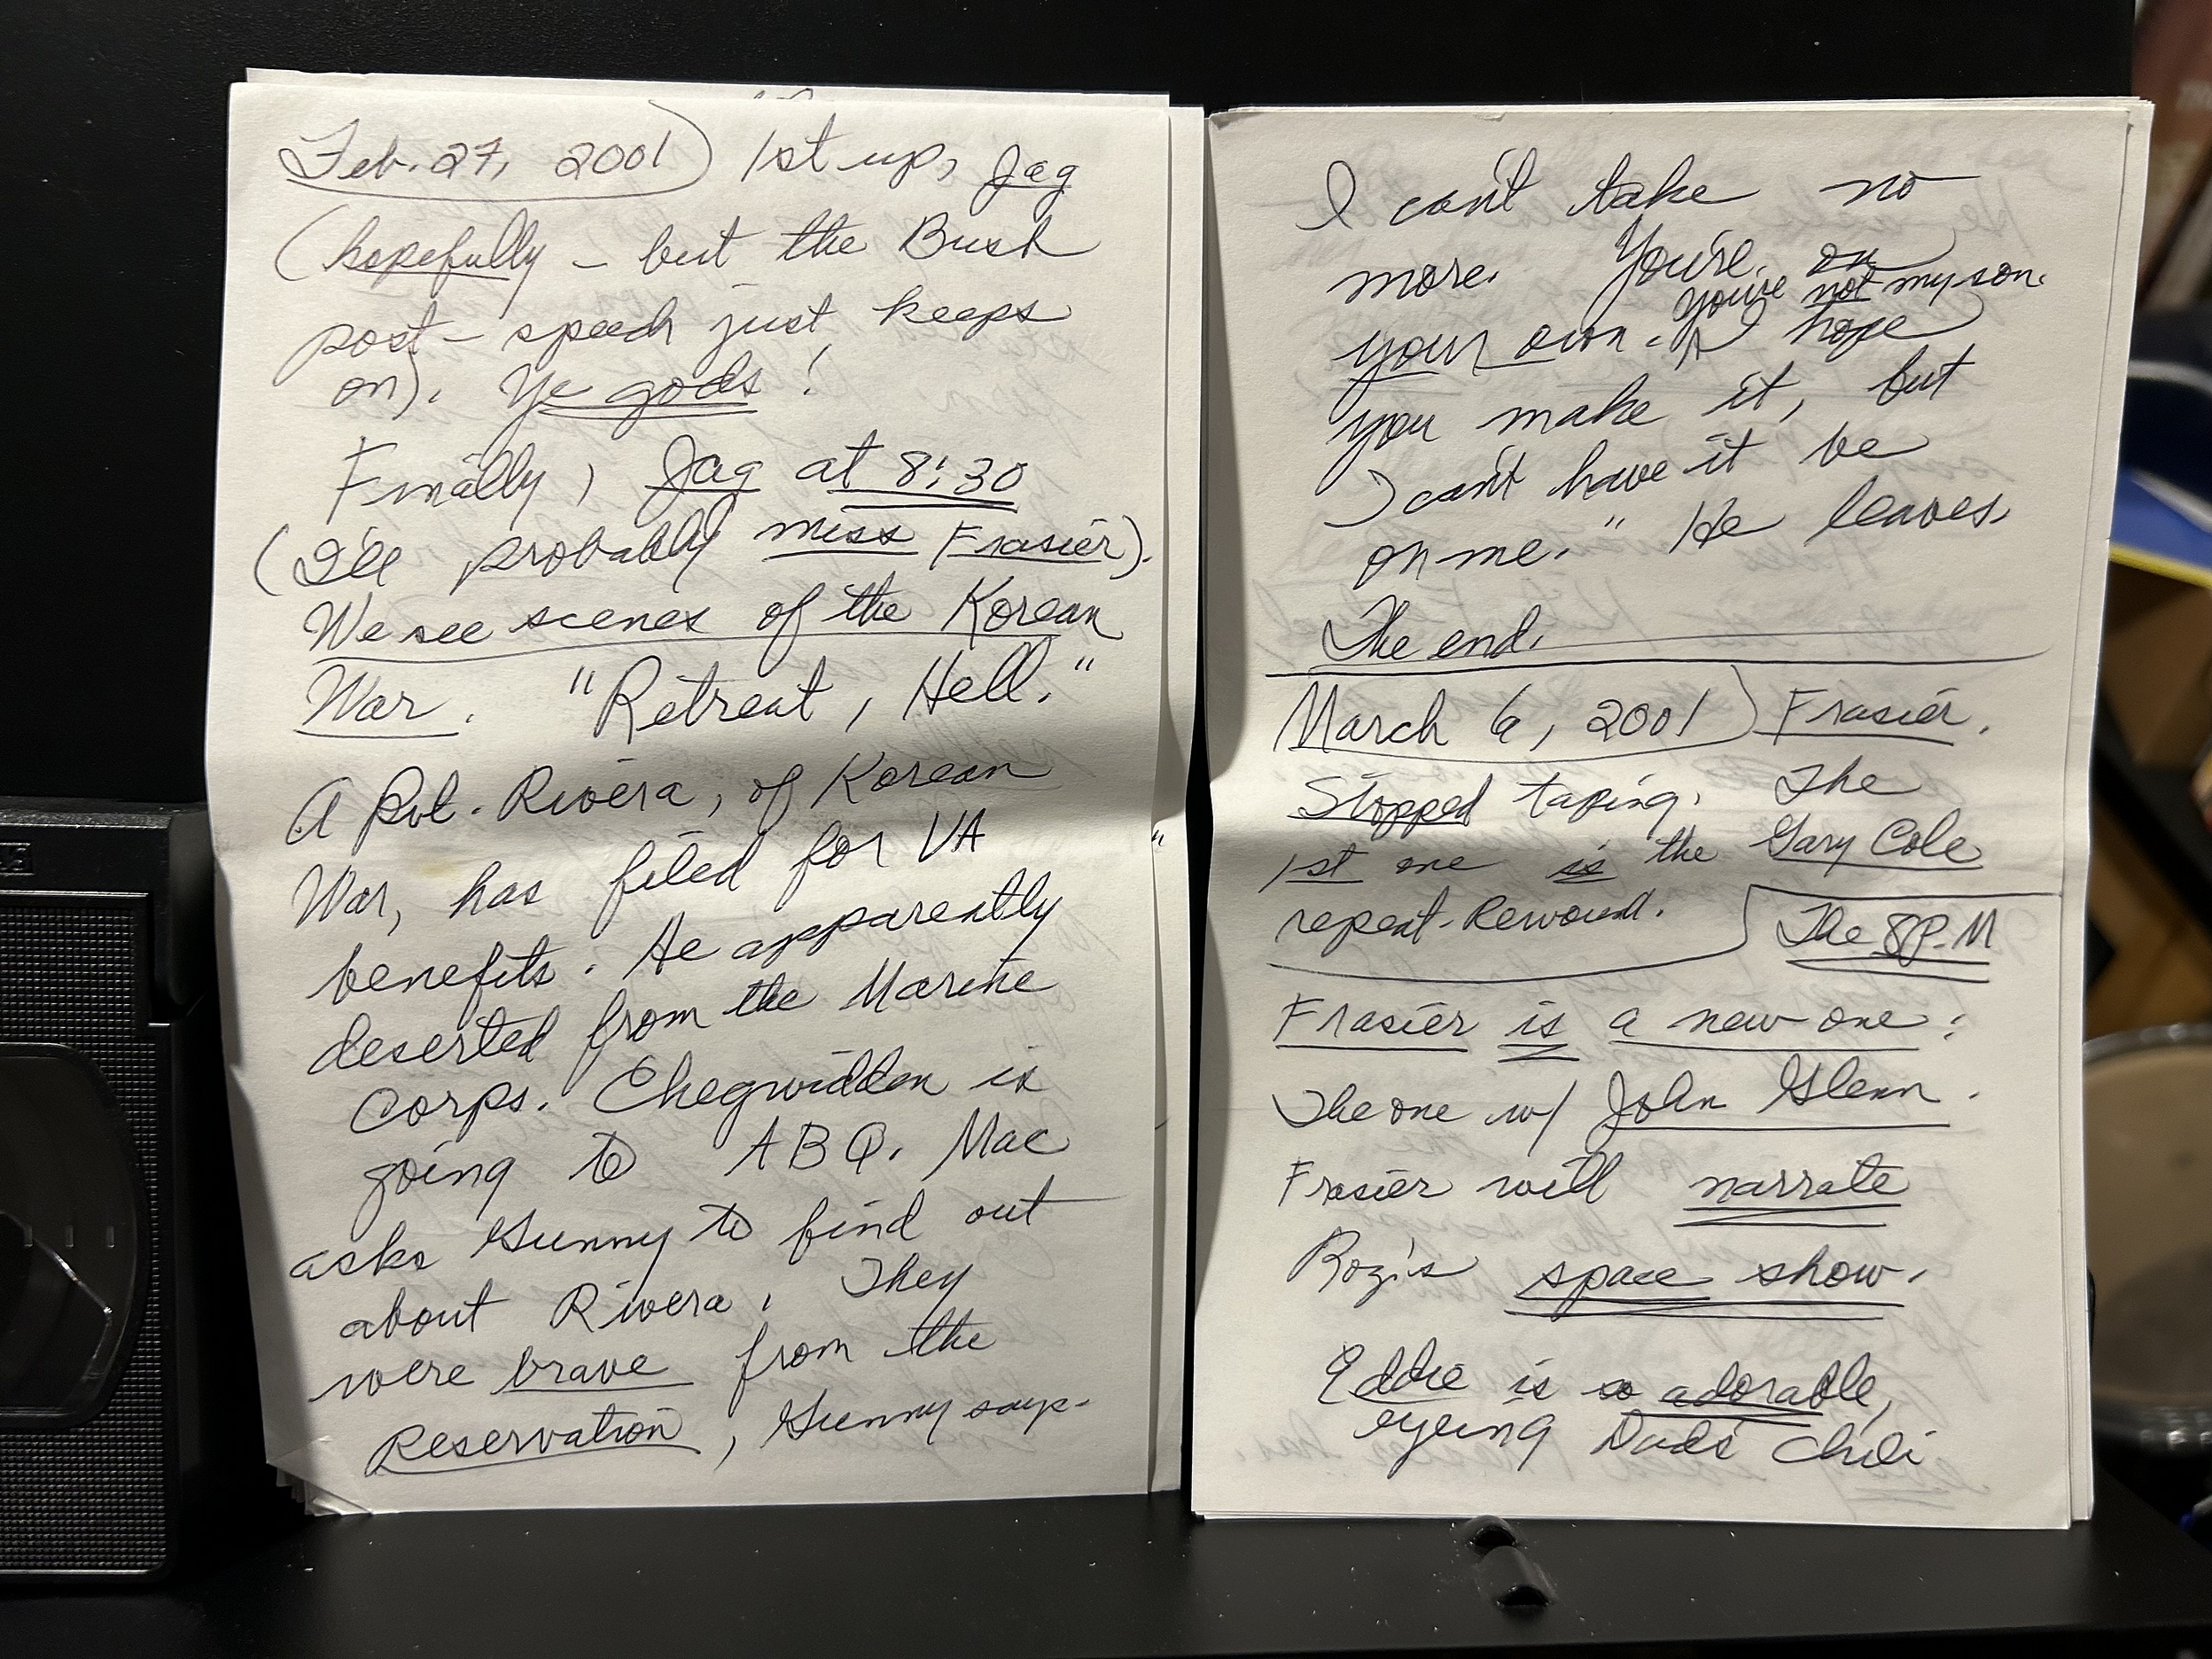 Feb. 27, 2001) 1st up, Jag
(hopefully - but the Bush
post-speech just keeps
on). Ye gods!
Finally, Jag at 8:30
(I'll probably miss Frasier).
We see scenes of the Korean
War. "Retreat, Hell."
A Pvt. Rivera, of Korean
War, has filed for VA
benefits. He apparently
deserted from the Marine
Corps. Chegwidden is
going to ABQ. Mac
asks Gunny to find out
about Rivera. They
were brave from the
Reservation, Gunny says.
I can't take no
more. You're on
You're not my son.
your own. I hope
you make it, but
I can't have it be
on me." He leaves.
The end.
March 6, 2001) Frasier.
Stopped taping. The
1st one is the Gary Cole
repeat. Rewound.
The 8P.M
Frasier is a new one:
The one w/ John Glenn.
Frasier will narrate
Roz's space show.
Eddie is so adorable,
eyeing Dad's chili